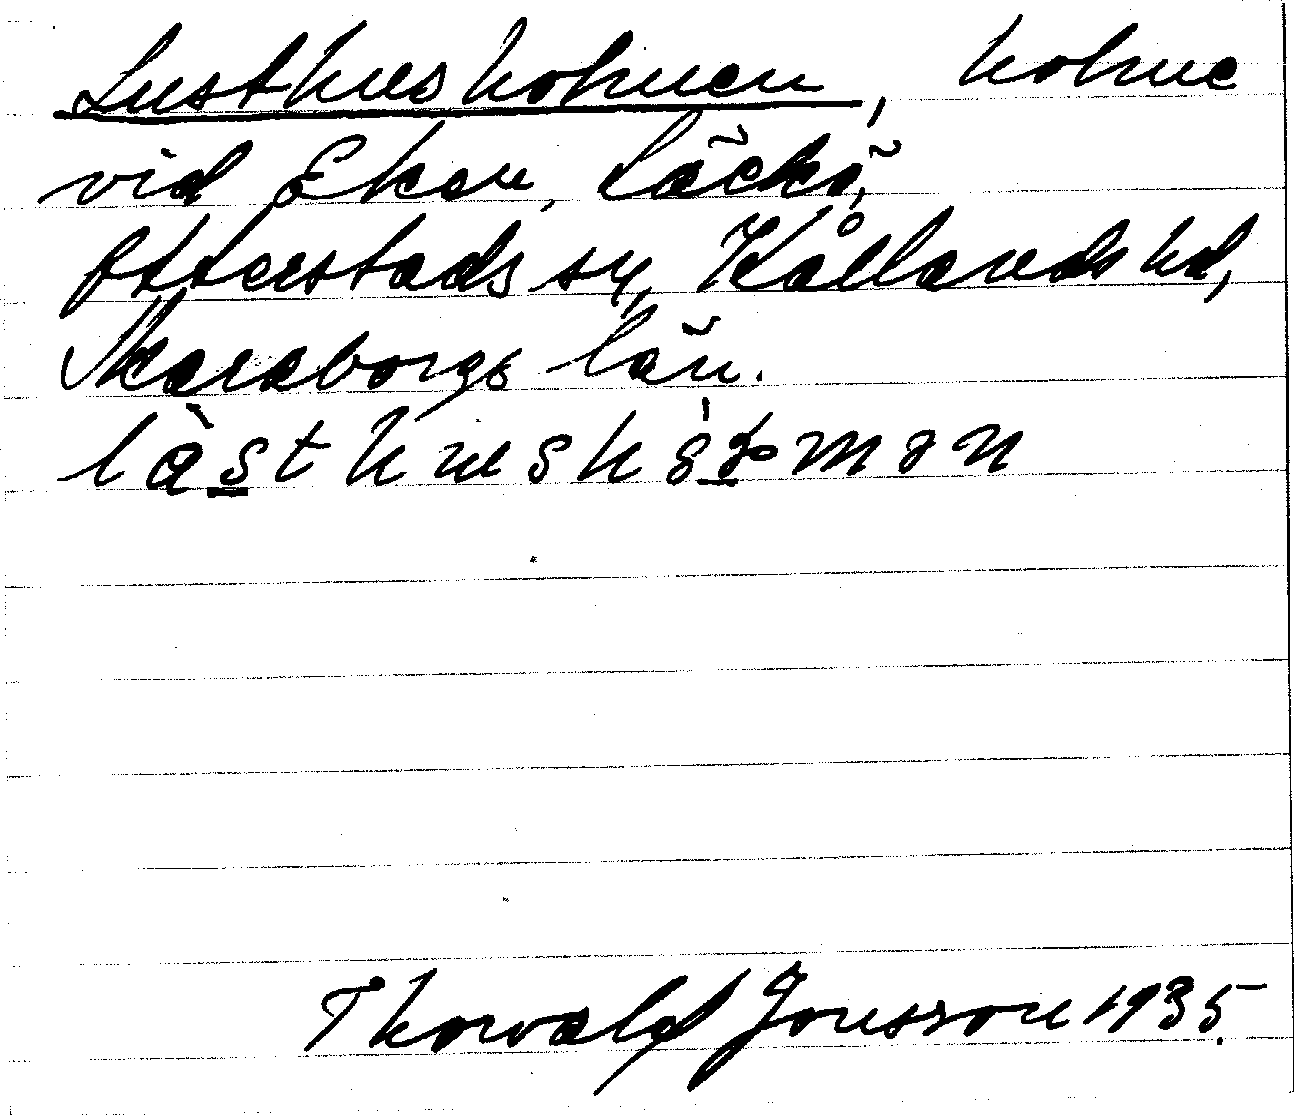 Lusthusholmen, holme
vid Ekan, Läckö,
Otterstads sn, Kållands hd,
Skaraborgs län.
Thorvald Jonsson 1935.